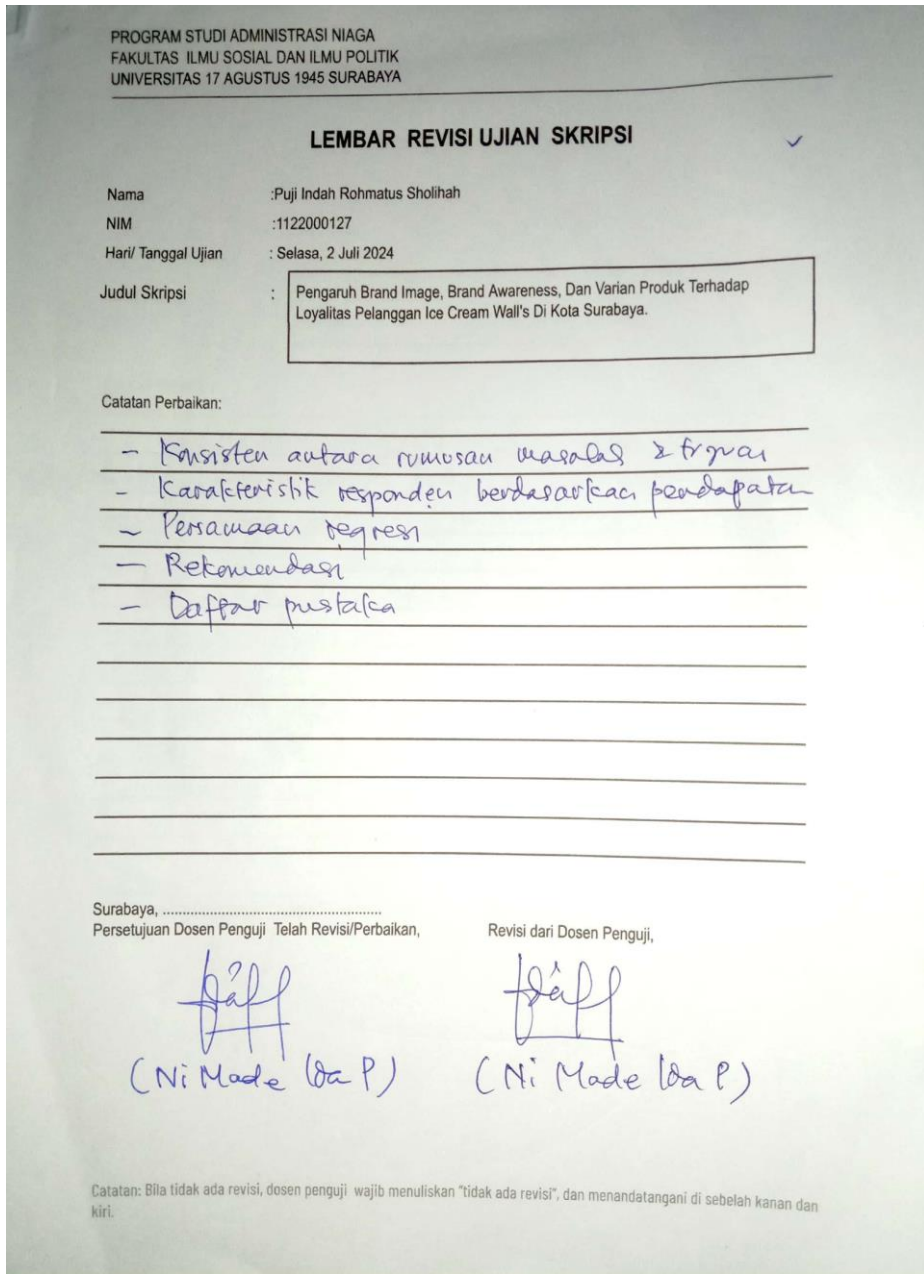 PROGRAM STUDI ADMINISTRASI NIAGA
FAKULTAS ILMU SOSIAL DAN ILMU POLITIK
UNIVERSITAS 17 AGUSTUS 1945 SURABAYA
LEMBAR REVISI UJIAN SKRIPSI
Nama :Puji Indah Rohmatus Sholihah
NIM :1122000127
Hari/ Tanggal Ujian : Selasa, 2 Juli 2024
Judul Skripsi : Pengaruh Brand Image, Brand Awareness, Dan Varian Produk Terhadap
Loyalitas Pelanggan Ice Cream Wall's Di Kota Surabaya.
Catatan Perbaikan:
- Konsisten antara rumusan masalah & tujuan
- Karakteristik responden berdasarkan pendapatan
- Persamaan regresi
- Rekomendasi
- Daftar pustaka
Surabaya, ........................................................
Persetujuan Dosen Penguji Telah Revisi/Perbaikan, Revisi dari Dosen Penguji,
(Ni Made Ida P) (Ni Made Ida P)
Catatan: Bila tidak ada revisi, dosen penguji wajib menuliskan "tidak ada revisi", dan menandatangani di sebelah kanan dan
kiri.